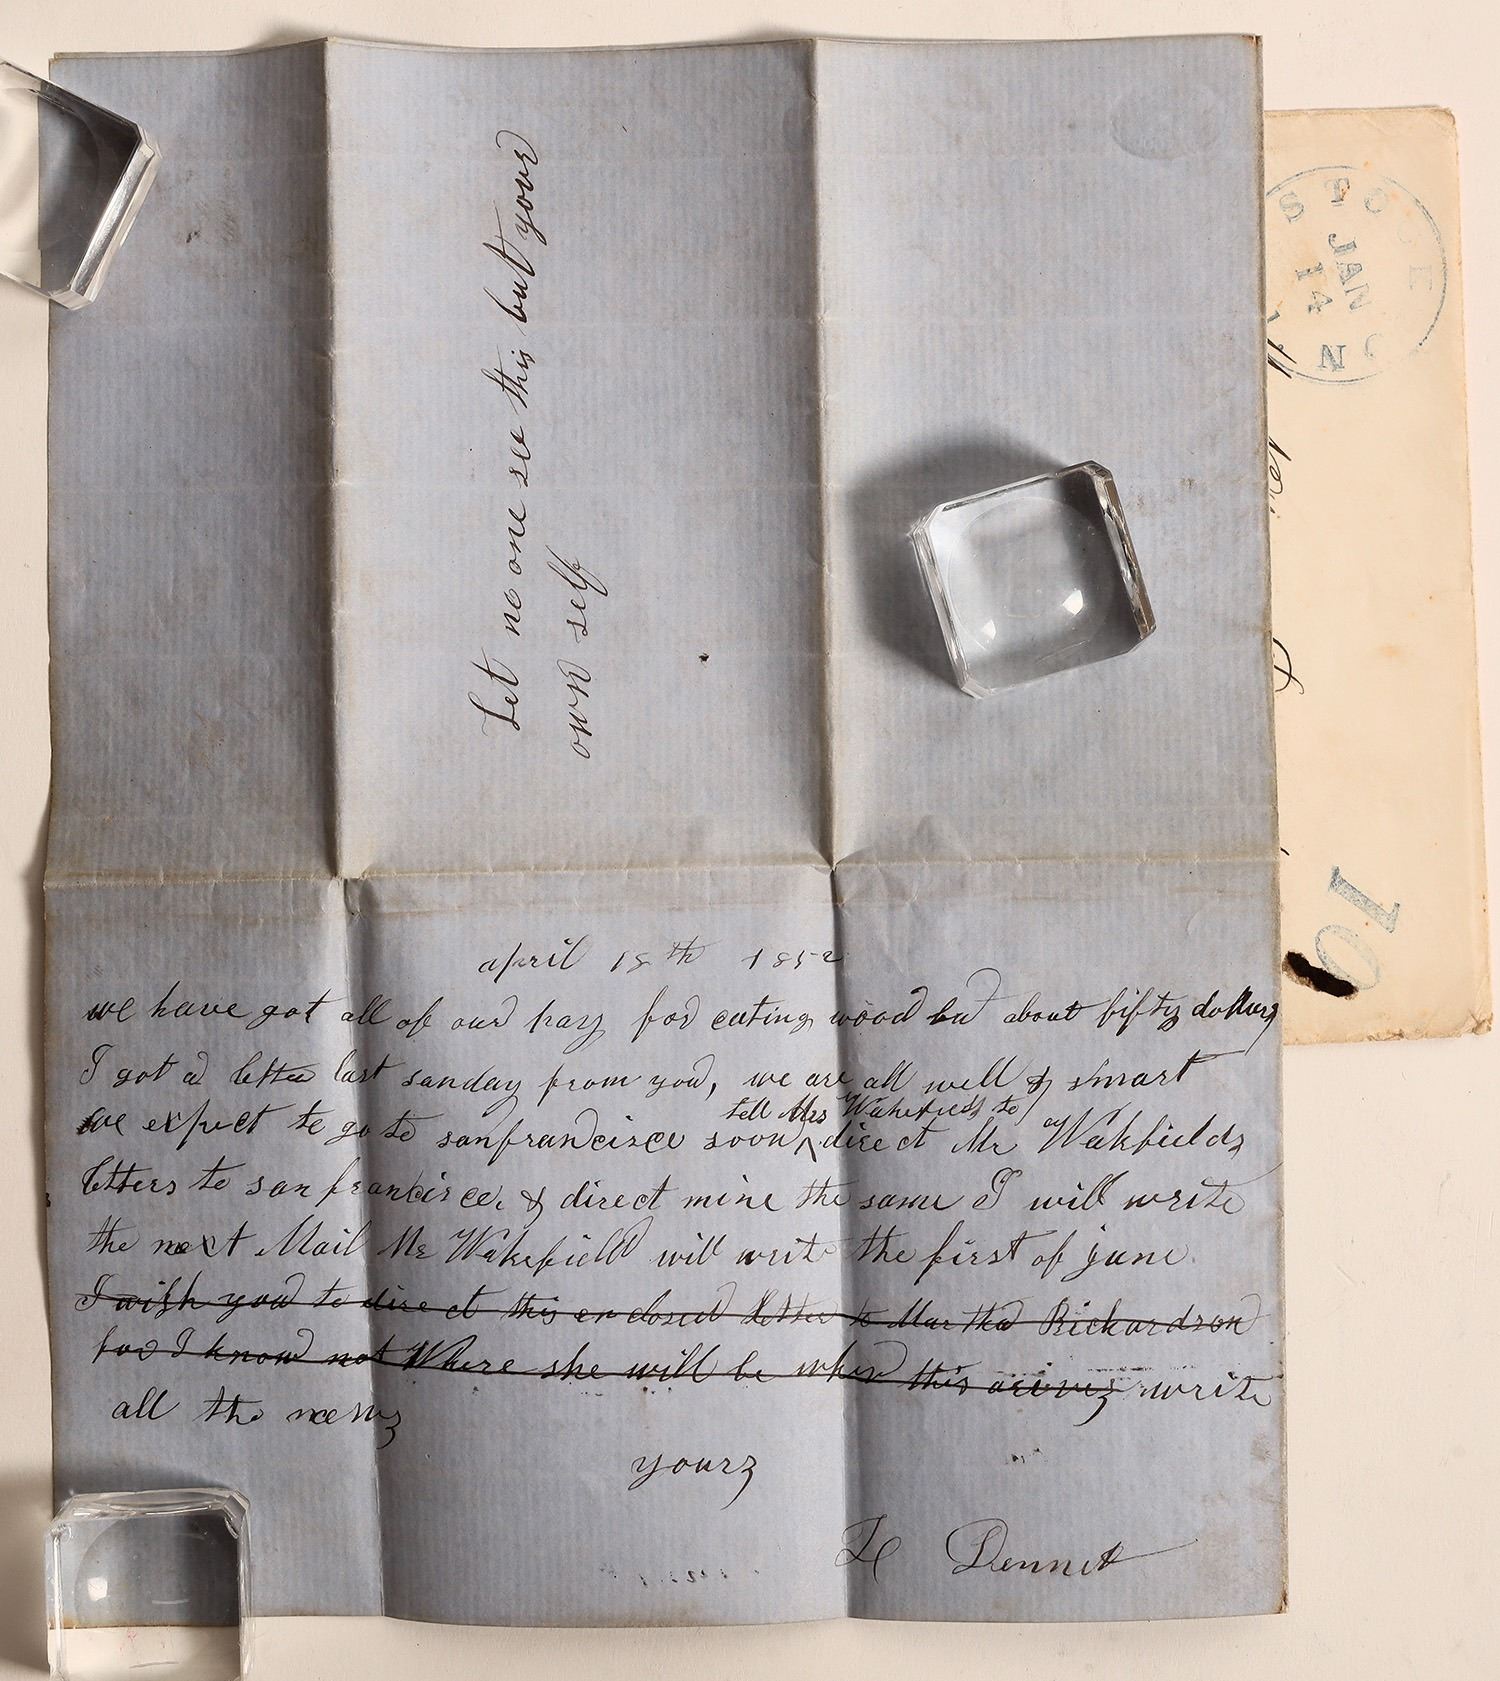 Let no one see this but your
own self
april 18th 1852
we have got all of our pay for cuting wood but about fifty dollars
I got a letter last sunday from you, we are all well & smart
tell Mrs Wakefield to
we expect to go to sanfrancisco soon ^ direct Mr Wakfields
letters to san francisco, & direct mine the same I will write
the next Mail Mr Wakefield will write the first of june.
I wish you to direct this enclosed letter to Martha Richardson
for I know not Where she will be when this arives write
all the news
yours
Dennet
STOCKTON
JAN
14
10